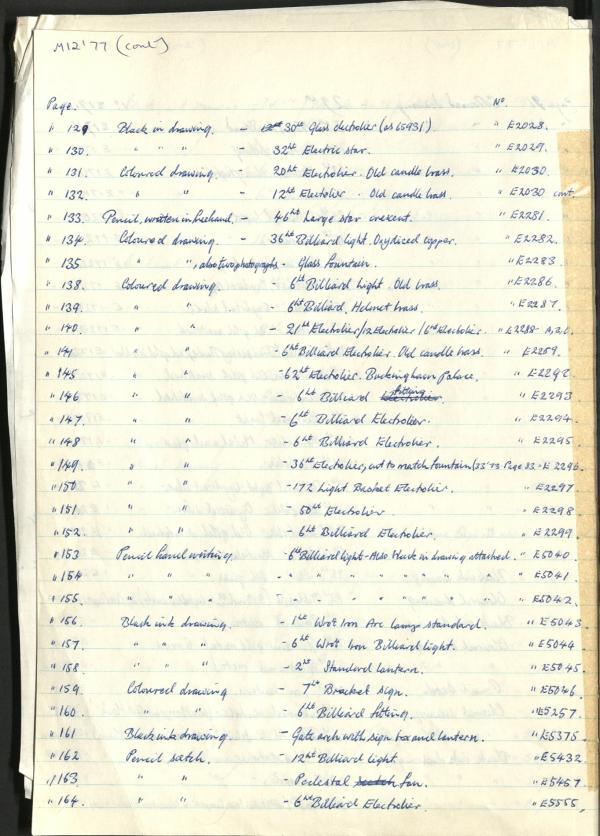 M12'77 (cont)
Page. No.
" 129 Black in drawing. - 12 lt 30 lt Glass electrolier (as 65931). " E2028.
" 130. " " " - 32 lt Electric star. " E2029.
" 131. Coloured drawing. - 20 lt Electolier. Old candle brass. " E2030.
" 132. " " - 12 lt Electolier. Old candle brass. " E2030 cont.
" 133. Pencil, written in freehand. - 46 lt Large star crescent. " E2281.
" 134. Coloured drawing. - 36 lt Billiard light. Oxydiced copper. " E2282.
" 135 " ", also two photographs - Glass fountain. " E2283.
" 138. Coloured drawing. - 6 lt Billiard Light. Old brass. " E2286.
" 139. " " - 6 lt Billiard, Helmet brass. " E2287.
" 140. " " - 21 lt Electolier/12 Electolier/6 lt Electolier. " E2288-
" 141 " " - 6 lt Billiard Electolier. Old candle brass. " E2259.
" 145 " " - 62 lt Electolier. Buckingham Palace. " E2292
" 146 " " - 6 lt Billiard electrolier fitting. " E2293
" 147. " " - 6 lt Billiard Electrolier. " E2294.
" 148 " " - 6 lt Billiard Electrolier. " E2295
" 149. " " - 36 lt Electrolier, cut to match fountain (33'73 Page 83. " E2296.
" 150 " " - 172 Light Basket Electolier. " E2297
" 151. " " - 50 lt Electrolier " E2298
" 152. " " - 6 lt Billiard Electrolier. " E2299.
" 153 Pencil handwriting. - 6 lt Billiard light - Also black in drawing attached. " E5040
" 154 " " " - " " " " " " " " E5041.
" 155. " " " - " " " " " " " " E5042.
" 156. Black ink drawing. - 1 lt Wrot Iron Arc lamp standard. " E5043
" 157. " " " - 6 lt Wrot Iron Billiard light. " E5044
" 158 " " " - 2 lt Standard lantern. " E5045
" 159. Coloured drawing - 7 lt Bracket sign. " E5046.
" 160. " " - 6 lt Billiard fitting. " E5257
" 161 Black ink drawing. - Gate arch with sign box and lantern. " E5375.
" 162 Pencil scetch. - 12 lt Billiard light. " E5432
" 163. " " - Pedestal scetch fan. " E5457
" 164. " " - 6 lt Billiard Electrolier. " E5555,